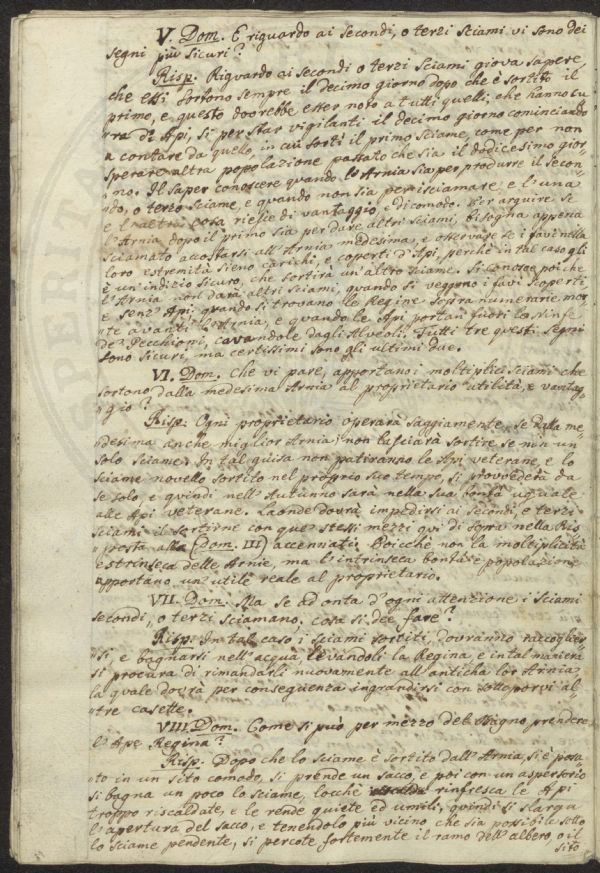 V. Dom. E riguardo ai secondi, o terzi sciami vi sono dei
segni più sicuri?
Risp. Riguardo ai secondi o terzi sciami giova sapere,
che essi sortono sempre il decimo giorno dopo che è sortito il
primo, e questo dovrebbe esser noto a tutti quelli, che hanno cu
rra di Api, si per star vigilanti il decimo giorno cominciando
a contare da quello in cui sortì il primo sciame, come per non
sperare altra popolazione passato che sia il dodicesimo gior,
no. Il saper conoscere quando l'Arnia sia per produrre il secon,
do, o terzo sciame, e quando non sia per isciamare, e l'una
e l'altra cosa riesce di vantaggio, e di comodo. Per arguire se
l'Arnia dopo il primo sia per dare altri sciami, bisogna appena
sciamato accostarsi all'Arnia medesima, e osservare se i favi nella
loro estremità sieno carichi, e coperti d'Api, perchè in tal caso gli
è un'indizio sicuro, che sortirà un'altro sciame. Si conosce poi che
l'Arnia non darà altri sciami, quando si veggono i favi scoperti
e senz'Api; quando si trovano le Regine sopra numerarie mor
te avanti l'Arnia, e quando le Api portan fuori la Ninfe
de' Pecchioni, cavandole dagli Alveoli. Tutti tre questi segni
sono sicuri, ma certissimi sono gli ultimi due.
VI. Dom. Che vi pare, apportano i moltiplici sciami che
sortono dalla medesima Arnia al proprietario utilità, e vantag,
gio?
Risp: Ogni proprietario operarà saggiamente, se dalla me,
desima anche miglior Arnia non lasciarà sortire se non un
solo sciame. In tal guisa non patiranno le Api veterane, e lo
sciame novello sortito nel proprio suo tempo, si provvederà da
se solo, e quindi nell'Autunno sarà nella sua bontà uguale
alle Api veterane. Laonde dovrà impedirsi ai secondi, e terzi
sciami il sortirne con que' stessi mezzi qui di sopra nella Ris
posta alla (Dom. III) accennati. Poicchè non la moltiplicità
estrinseca delle Arnie, ma l'intrinseca bontà e popolazione
apportano un'utile reale al proprietario.
VII. Dom: Ma se ad onta d'ogni attenzione i sciami
secondi, o terzi sciamano, cosa si dee fare?
Risp: In tal caso i sciami sortiti, dovranno raccoglier,
si, e bagnarsi nell'acqua, levandoli la Regina, e in tal maniera
si procura di rimandarli nuovamente all'anticha lor Arnia
la quale dovrà per conseguenza ingrandirsi con sottoporvi al
tre casette.
VIII. Dom. Come si può per mezzo del Bagno prendere
l'Ape Regina?
Risp: Dopo che lo sciame è sortito dall'Arnia, si è posa,
to in un sito comodo, si prende un sacco, e poi con un aspersorio
si bagna un poco lo sciame, locchè rinfresca le Api
troppo riscaldate, e le rende quiete ed umili, quindi si slarga
l'apertura del sacco, e tenendolo più vicino che sia possibile sotto
lo sciame pendente, si percote fortemente il ramo dell'albero, o il
sito